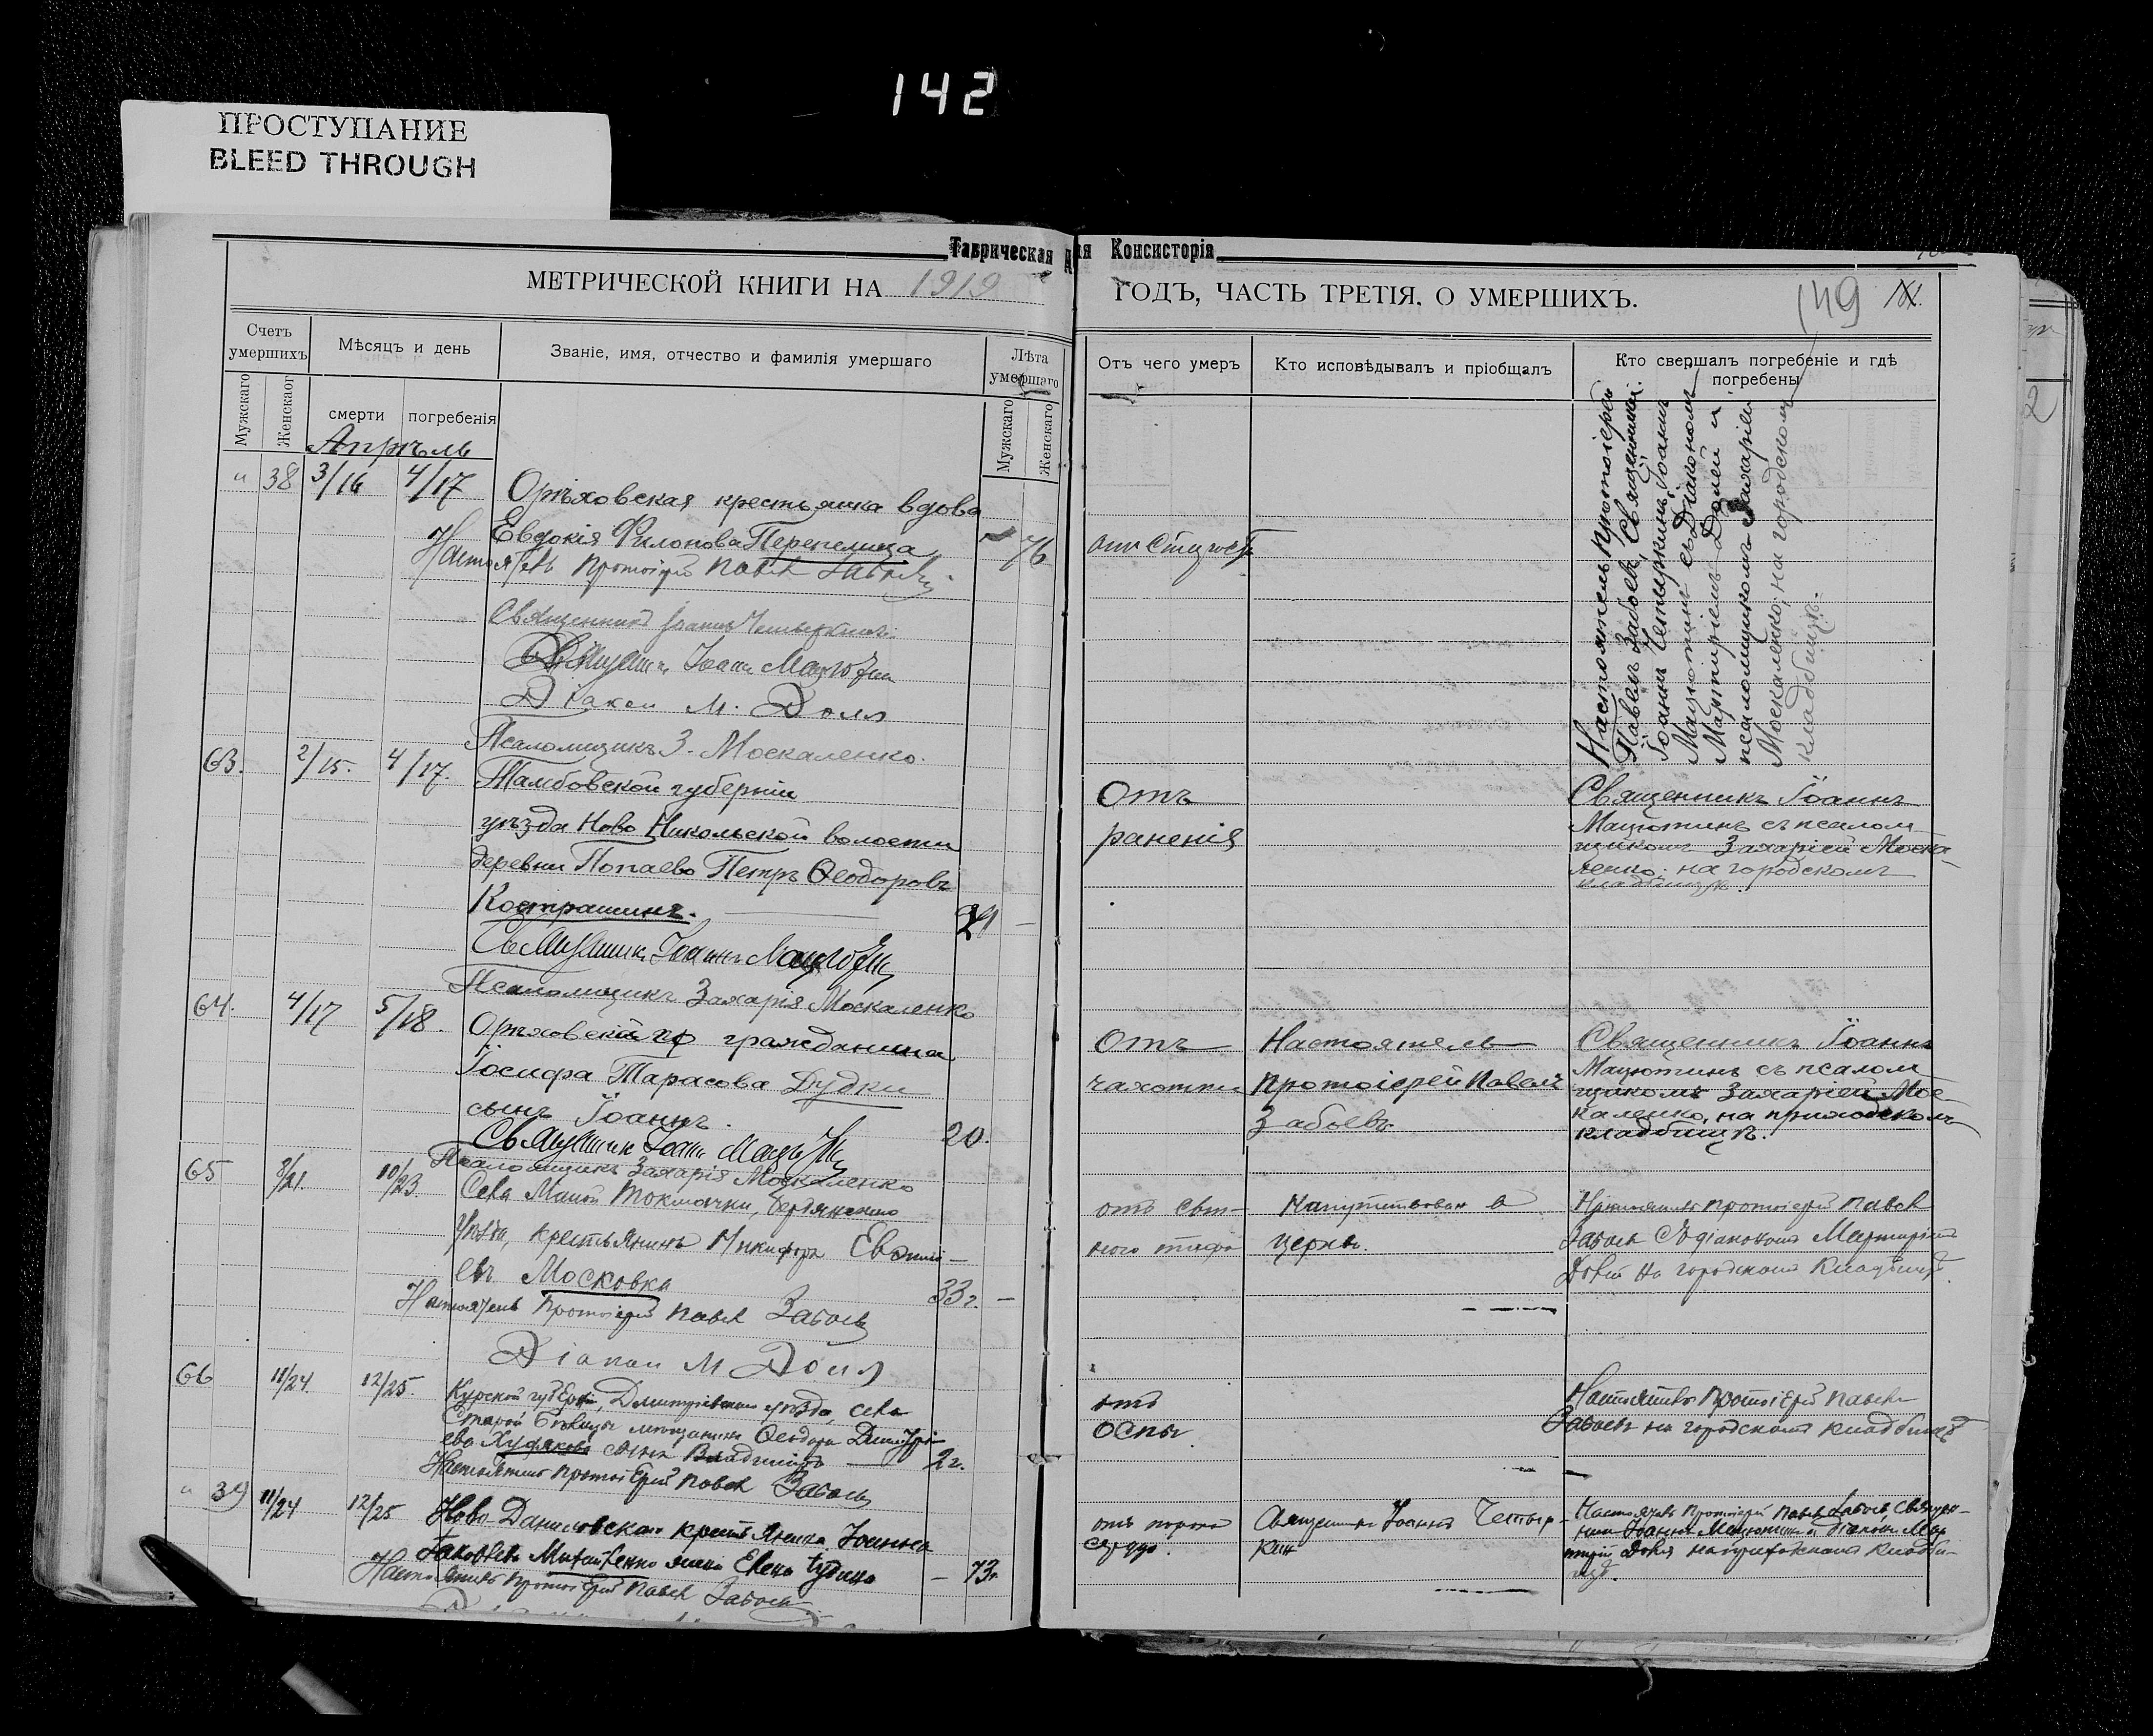 142
ПРОСТУПАНИЕ
BLEED THROUGH
Таврическая Д ія Консисторія
МЕТРИЧЕСКОЙ КНИГИ НА 1919
ГОДЪ, ЧАСТЬ ТРЕТІЯ, О УМЕРШИХЪ.
149
Счетъ умершихъ
Мѣсяцъ и день
Званіе, имя, отчество и фамилія умершаго
Лѣта умершаго
Отъ чего умеръ
Кто исповѣдывалъ и пріобщалъ
Кто свершалъ погребеніе и гдѣ погребены
Мужскаго
Женскаог
смерти
погребенія
Мужскаго
Женскаго
Апрѣль
" 38 3/16 4/17 Орѣховская крестьянка вдова
Евдокія Филонова Перепелица 76
Настоятель Протоіерей Павелъ Забоевъ
Священникъ Іоаннъ Четыркинъ
Священникъ Іоаннъ Мацютинъ
Діаконъ М. Доля
Псаломщикъ З. Москаленко.
отъ старости
Настоятель протоіерей
Павелъ Забоев, Священники:
Іоаннъ Четыркинъ, Іоаннъ
Мацютинъ съ Діакономъ
Мартиріемъ Долей и
псаломщикомъ Захаріей
Москаленко; на городскомъ
кладбищѣ.
63. 2/15. 4/17. Тамбовской губерніи
уѣзда Ново Никольской волости
деревни Попаево Петръ Ѳеодоровъ
Костращинъ.
Священникъ Іоаннъ Мацютинъ
Псаломщикъ Захарія Москаленко
Отъ
раненія
Священникъ Іоаннъ
Мацютинъ съ псалом
щикомъ Захаріей Моска-
ленко; на городскомъ
кладбищѣ.
64. 4/17 5/18. Орѣховскаго гражданина
Іосифа Тарасова Дудки
сынъ Іоаннъ. 20.
Священникъ Іоаннъ Мацютинъ
Псаломщикъ Захарія Москаленко
Отъ
чахотки
Настоятель
протоіерей Павелъ
Забоевъ.
Священникъ Іоаннъ
Мацютинъ съ псалом
щикомъ Захаріей Мос-
каленко, на приходскомъ
кладбищѣ.
65 8/21. 10/23 Села Малой Токмачки, Бердянскаго
уѣзда, крестьянинъ Никифоръ
евъ Московка 33 г. —
Настоятель Протоіерей Павелъ Забоевъ
Діаконъ М Доля
отъ сып-
ного тифа
Напутствован в
церкви.
протоіерей Павел
Забоевъ съ діакономъ Мартиріемъ
Долей на городскомъ кладбищѣ.
66 11/24. 12/25. Курской губерніи, Дмитріевскаго уѣзда, села
Старой мѣщанина Ѳеодора Дмитріе-
ева Худякова сынъ Владиміръ — 2 г.
Настоятель протоіерей Павелъ Забоевъ
отъ
оспы
Настоятель Протоіерей Павелъ
Забоевъ на городскомъ кладбищѣ
" 39 11/24 12/25 Ново-Даниловская крестьянка Іоанна
Яковлева жена Елена — 73 г.
Настоятель Протоіерей Павелъ Забоевъ
отъ порока
сердца.
Священникъ Іоаннъ Четыр-
кин
Настоятель Протоіерей Павелъ Забоев, Священ-
ник Іоаннъ Мацютинъ и діаконъ Мар
тирій Доля на приходскомъ кладби-
щѣ.